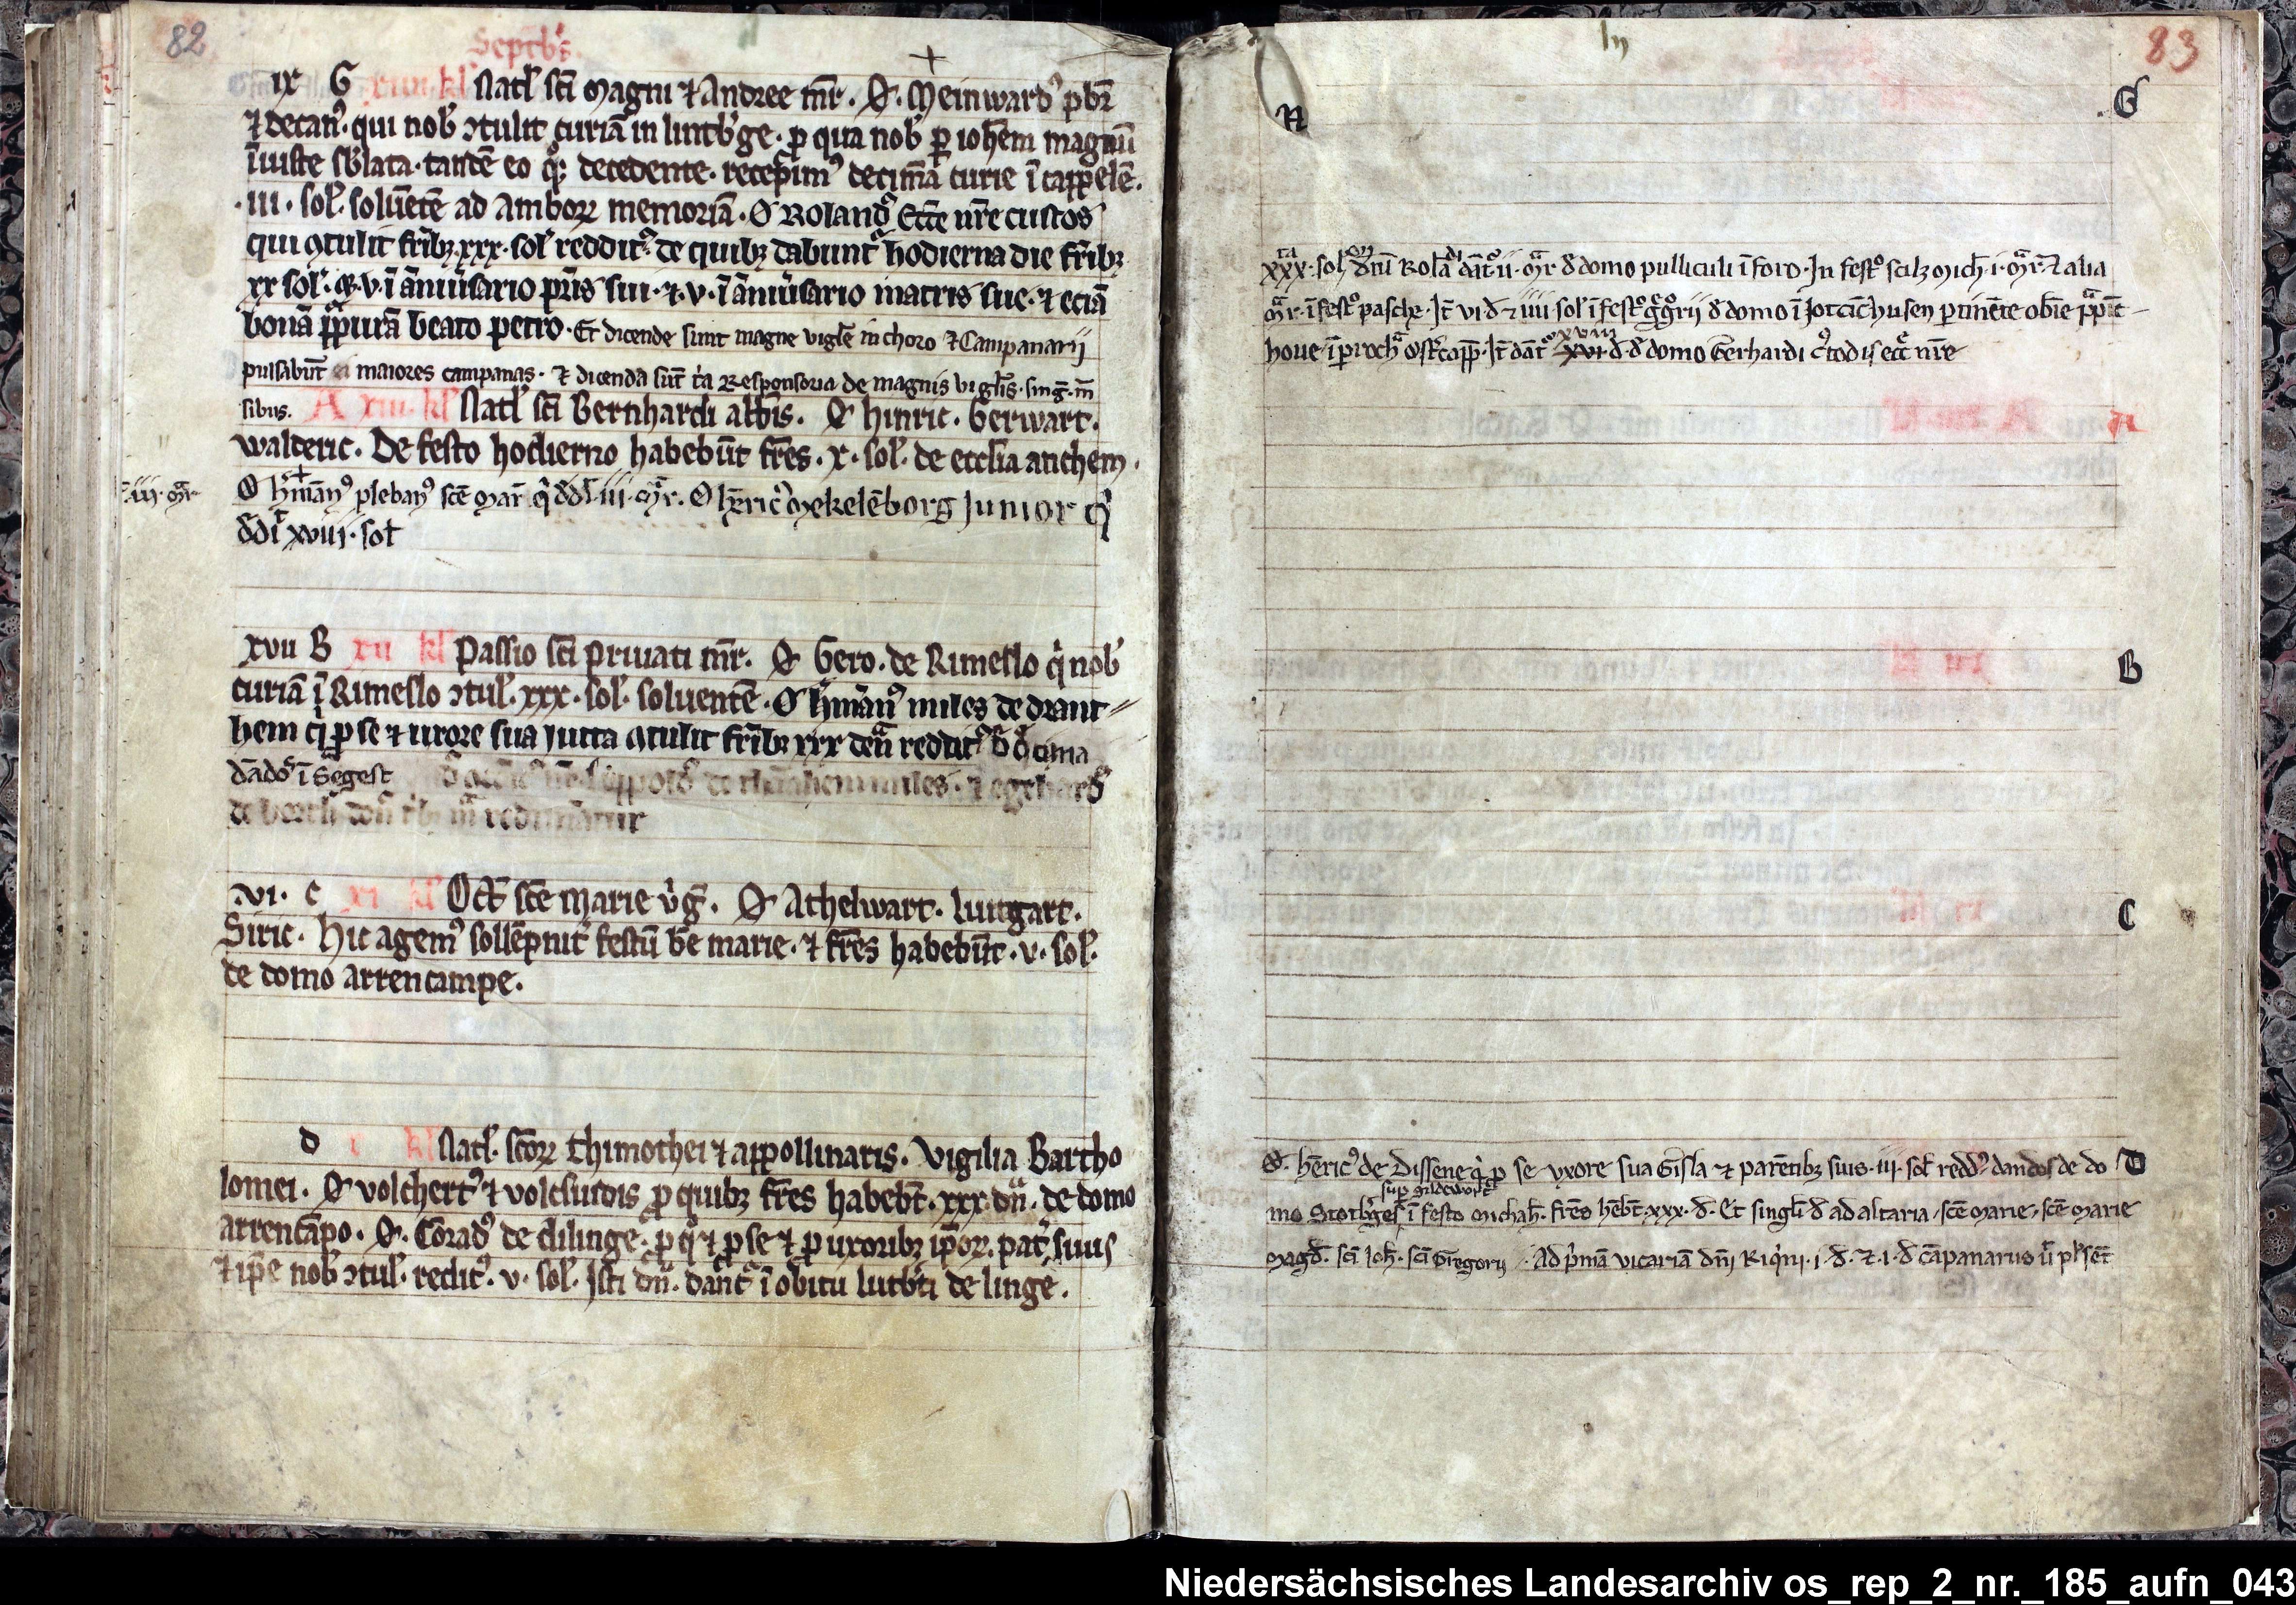 82
Septb's
ix G xiiii kl' Natl' sci Magni ⁊ Andree mr̄. O. Meinward' pb'r
⁊ decan'. qui nob' ɔtulit curiā in lintb'ge. p qua nob' p ioh'em magnū
īiuste sb'lata. tandē eo q;. decedente. recepim' decimā curie ī cappelē.
.iii. sol'. solūetē ad amborꝝ memoriā. O Roland' Ecc̄e nr̄e custos
qui ɔtulit fr̄ibꝫ. xxx. sol' reddit'. de quibꝫ dabunt' hodierna die fr̄ibꝫ
xx sol'. ⁊. v. ī āniu'sario pr̄is sui. ⁊. v. ī āniu'sario matris sue. ⁊ eciā
bonā p'purā beato petro. Et dicende sunt magne vigl'e in choro ⁊ Campanarij
pulsabūt maiores campanas. ⁊ dicenda sūt t'a Responsoria de magnis vigl'is. sing. m̄
sibus. A xiii. kl' Natl' sci Bernhardi abb̄is. O Hinric. Gerwart.
Walteric. De festo hodierno habebūt fr̄es. x. sol'. de ecclīa anchem.
iij. mr̄ O h'mān' pleban' sc̄e mar' q' dd't iii. mr̄. O hēric' Mekelēborg Junior q'
dd't xviij. sol'
xvii B xii kl' Passio sci Priuati mr̄. O Gero. de Rimeslo q' nob'
curiā ī Rimeslo ɔtul'. xxx. sol'. soluentē. O h'mān' miles de drant
hem q' p se ⁊ uxore sua Jutta ɔtulit fr̄ibꝫ xxx den' reddit' d' decima
dādo' ī Segest miles. ⁊ egehard'
vi. C xi kl' Oct' sc̄e Marie v'g'. O Athelwart. Lutgart.
Siric. Hic agem' sollēpnit' festū b̄e marie. ⁊ fr̄es habebūt. v. sol'.
de domo arrencampe.
D x kl' Natl'. sc̄orꝝ Thimothei ⁊ appollinaris. Vigilia Bartho
lomei. O volchert' ⁊ volcsuidis p quibꝫ fr̄es habeb̄t. xxx. dn̄. de domo
arrencāpo. O. Corad' de dilinge. p q' ⁊ p se ⁊ p uxoribꝫ ip̄orꝝ. pat' suus
⁊ ip̄e nob' ɔtul'. redit'. v. sol'. Isti dn̄. dant' ī obitu lutb'ti de linge.
83
In
A
G
xxx. sol' dn̄i Rolādi dāt' ii. mr̄. d' domo pulliculi ī foro. In festo scilꝫ mich. i. mr̄. ⁊ alia
mr̄. ī festo pasche. It vi. d ⁊ iiii. sol' ī festo g'g'rij d' domo ī Jottichusen p tinēte obīe
houe ī p'roch' Ost'capp. It dāt' xviii xvi. d. d' domo Gerhardi c'todis ecc̄ nr̄e
A
B
C
O. hēric' de Dissene q' p se vxore sua Gisla ⁊ parētibꝫ suis. iii. sol' redd' dandos de do D
sup gildewort
mo Stotb'ges ī festo michah'. fr̄es heb̄t. xxx. d. Et singl'i d ad altaria sc̄e marie, sc̄e marie
magd'. sci Joh'. sci Gregorij. Ad p'mā vicariā dn̄i Riq'ni. i. d. ⁊. i. d cāpanarus
Niedersächsisches Landesarchiv os_rep_2_nr._185_aufn_043